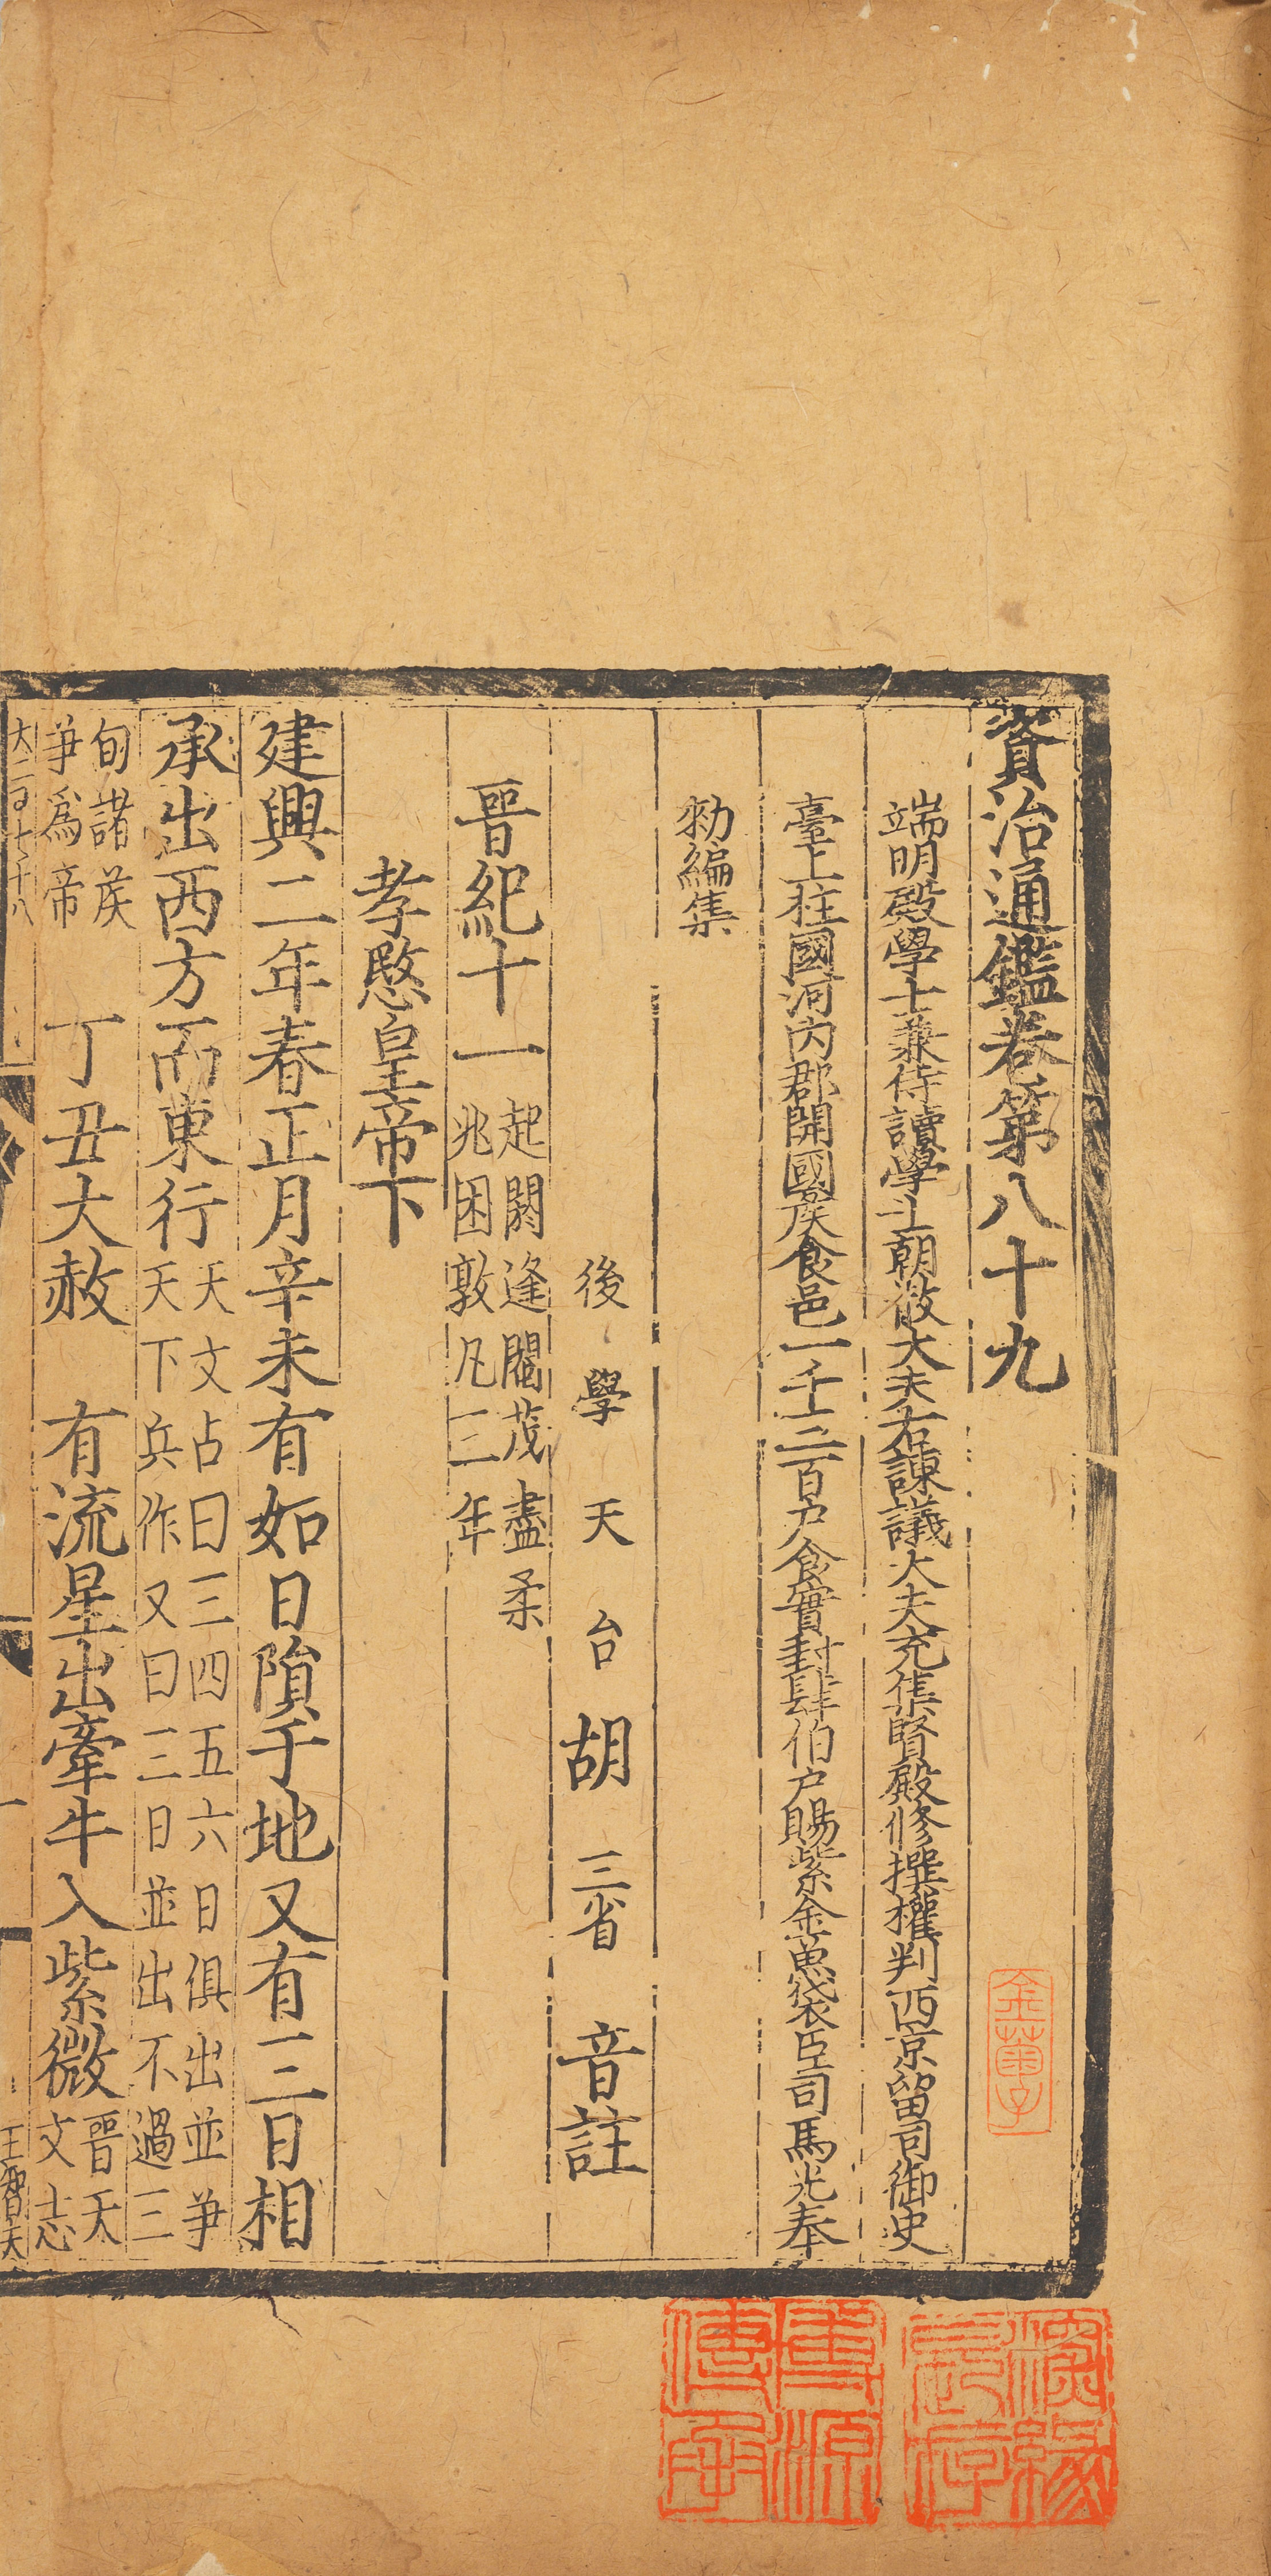 資治通鑑卷第八十九
端明殿學士兼侍讀學士朝散大夫右諫議大夫充集賢殿修撰權判西京留司御史
臺上柱國河內郡開國矦食邑一千三百户食實封肆伯户賜紫金魚袋臣司馬光奉
勑編集
後學天台胡三省音註
晉紀十一起閼逢閹茂盡柔
兆困敦凡三年
孝愍皇帝下
建興二年春正月辛未有如日隕于地又有三日相
承出西方而東行天文占曰三四五六日俱出並爭
天下兵作又曰三日並出不過三
旬諸矦
爭爲帝
丁丑大赦　有流星出牽牛入紫微晉天
文志